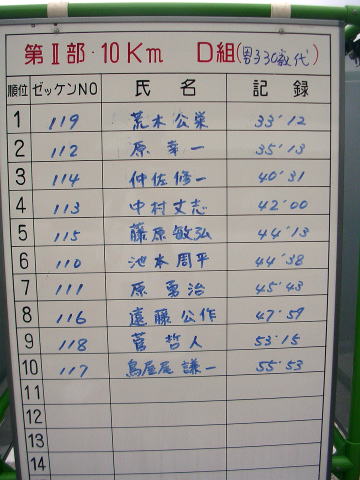 第Ⅱ部・10Km D組(男子30歳代)
順位 ゼッケンNO 氏名 記録
1 119 荒木公栄 33'12
2 112 原幸一 35'13
3 114 仲佐修一 40'31
4 113 中村丈志 42'00
5 115 藤原敏弘 44'13
6 110 池本周平 44'38
7 111 原勇治 45'43
8 116 遠藤公作 47'57
9 118 菅哲人 53'15
10 117 鳥屋尾謙一 55'53
11
12
13
14